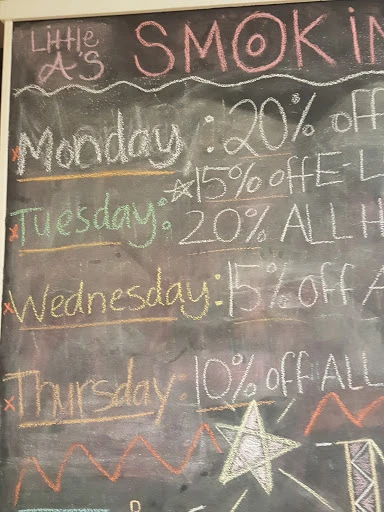 Little
A'S SMOKiN
Monday : 20% off
☆15% off E-L
Tuesday: 20% ALL H
Wednesday: 15% off A
Thursday: 10% off ALL